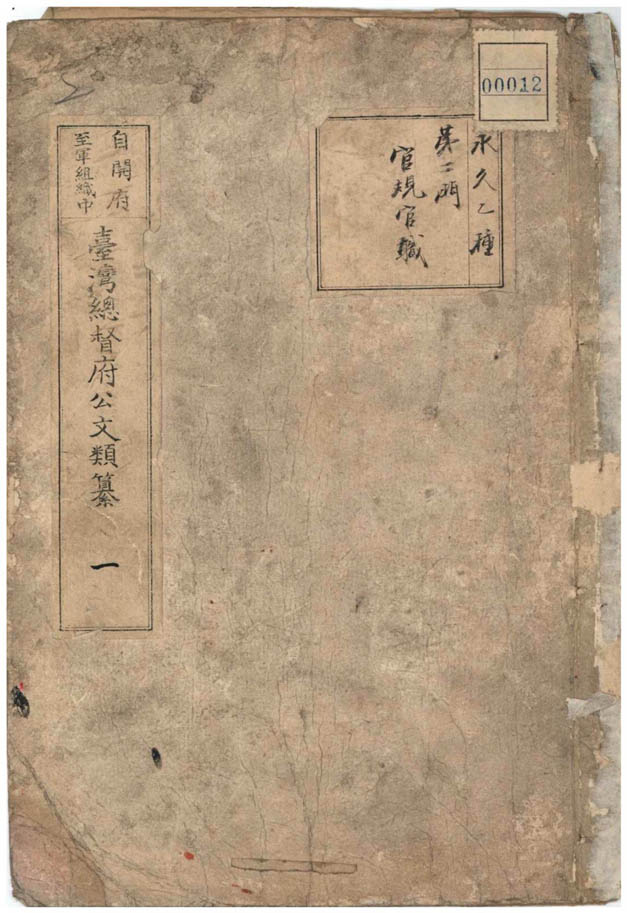 00012
永久乙種
第二門
官規官職
自開府
至軍組織中
臺灣總督府公文類纂 一